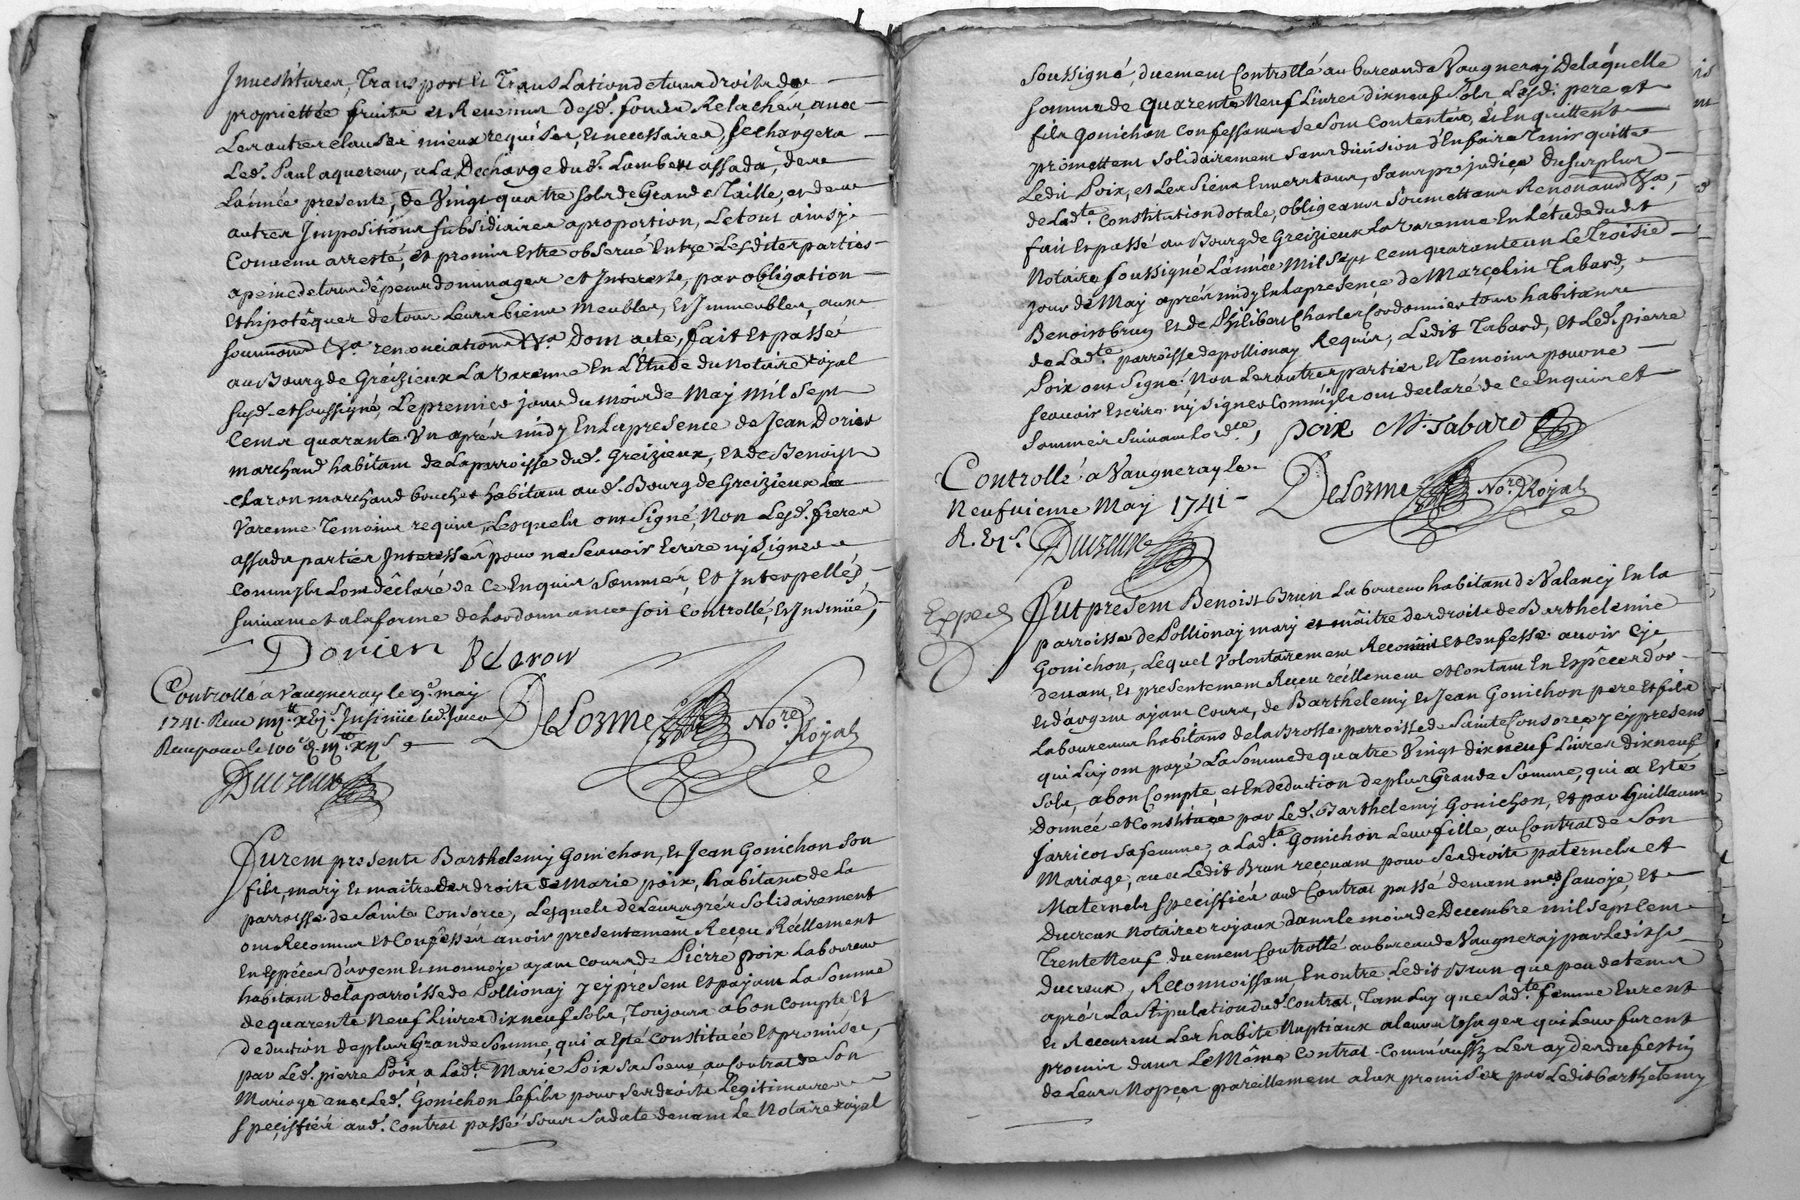 Jnuestitures, Transport et Translation de tous droits de
propriettée fruits et Reuenus desd. fonds Relachés, auec
Les autres clauses mieux requises, et necessaires, se chargera
Led. Paul aquereur, a La Decharge dud. Lambert assada, de ce
L'année presente, de Vingt quatre sols de Grande Taille, et deux
autres Jmpositions subsidiaires a proportion, Le tout ainsy
Conuenu arresté, et promis Estre obserué Entre Lesdites parties
a peine de tous dêpens dommages et Jnterests, par obligation
Et hipotêquer de tous Leurs biens meubles, Et Jmmeubles, auec
soumions &a renonciations &a Dont acte, fait Et passé
au Bourg de Greizieux La Varenne En L'Etude du notaire royal
susd. et soussigné, Le premier jour du mois de May mil sept
Cents quarante Vn aprés midy En La presence de Jean Dorier
marchand habitant de La parroisse dud. Greizieux, et de Benoist
claron marchand boucher habitant aud. Bourg de Greizieux La
Varenne Temoins requis, Lesquels ont signé, Non Lesd. freres
assada parties Jnteressés pour ne Scauoir Ecrire ny signer
Comm'ils L'ont dêclaré de Ce Enquis Sommés, Et Jnterpellés,
suiuant et a la forme de L'ordonnance soit Controllé, Et Jnsinüé,
Dorier B claron
Controllé a Vaugneray le 9e. may
1741. Receu
DeLorme No.re Royal
Ducreux
Furent presents Barthelemy Gonichon, Et Jean Gonichon son
fils, mary Et maitre des droits de Marie poix, habitans de La
parroisse de Sainte Consorce, Lesquels de Leurs grés solidairement
ont Reconnus et Confêssés auoir presentement Reçu Réellement
En Espêces d'argent Et monnoye ayant cours de Pierre poix Laboureur
habitant de la parroisse de Pollionay Jcy présent Et payant La somme
de quarente neuf Liures dix neuf sols, Toujours a bon compte Et
deduction de plus grande somme, qui a Esté constituée Et promise,
par Led. pierre Poix a Ladte. Marie Poix sa soeur, au Contrat de son
Mariage auec Led. Gonichon Le fils pour ses droits Legitimaires
speçiffiés aud. contrat passé sous sa date deuant Le Notaire royal
soussigné, duement Controllé au bureau de Vaugneray de laquelle
somme de quarente Neuf Liures dix neuf sols Lesd. pere et
fils Gonichon Confessants se sont Contentés, et En quittent
promettent solidairement sans diuision d'En faire Tenir quitte
Ledit Poix, et Les siens Enuers tous, sans prejudiçe du surplus
de Ladte. Constitution dotale, obligeants soumettans Renonants &a,
fait Et passé au Bourg de Greizieux La Varenne En L'étude dudit
Notaire soussigné L'année Mil Sept Cent quarante un Le Troisie
jour de May aprés midy En La presence de Marçelin Tabard,
Benoist brun Et de Philibert Charles Cordonnier tous habitants
de Ladte. parroisse de pollionay Requis, Ledit Tabard, et Led. pierre
Poix ont signé. Non Les autres parties Et Temoins pour ne
scauoir Escrire ny signer Comm'ils ont declaré de Ce Enquis et
sommés suiuant L'ordce.,
poix M. Tabard
Controllé a Vaugneray Le
Neufuieme May 1741
DeLorme No.re Royal
Ducreux
Exped.
Fut present Benoist Brun Laboureur habitant de Valancy En La
parroisse de Pollionay mary et mâitre des droits de Barthelemie
Gonichon, Lequel Volontairement Reconnu et confesse auoir Cy
deuant, Et presentement Reçu réellement et Contant En Espêces d'or
Et d'argent ayant Cours, de Barthelemy Et Jean Gonichon pere Et fils
Laboureurs habitans de la Brosse parroisse de Sainte Consorce Jcy presens
qui Luy ont payé La somme de quatre Vingt dix neuf Liures dix neuf
sols, a bon Compte, et En deduction de plus Grande somme, qui a Esté
donnée et Constituée par Led. Barthelemy Gonichon, Et par Guillaume
Jarricot sa femme, a Ladte. Gonichon Leur fille, au Contrat de son
Mariage, auec Ledit Brun reçeuant pour ses droits paternels et
Maternels speçiffiés aud Contrat passé deuant mes. Sauoye, Et
Ducreux Notaires royaux dans le mois de Decembre mil sept Cent
Trente Neuf, duement Controllé au bureau de Vaugneray par Ledit Sr.
Ducreux, Reconnoissant En outre Ledit Brun que peu de tems
aprés La stipulation dud. Contrat, Tant Luy que sadte. femme Eurent
Et Reçeurent Les habits Nuptiaux a Leurs Usages qui Leur furent
promis dans Le Même contrat. Comm'aussy Les aydes du festin
de Leurs Nopçes pareillement a Eux promises par Ledit barthelemy